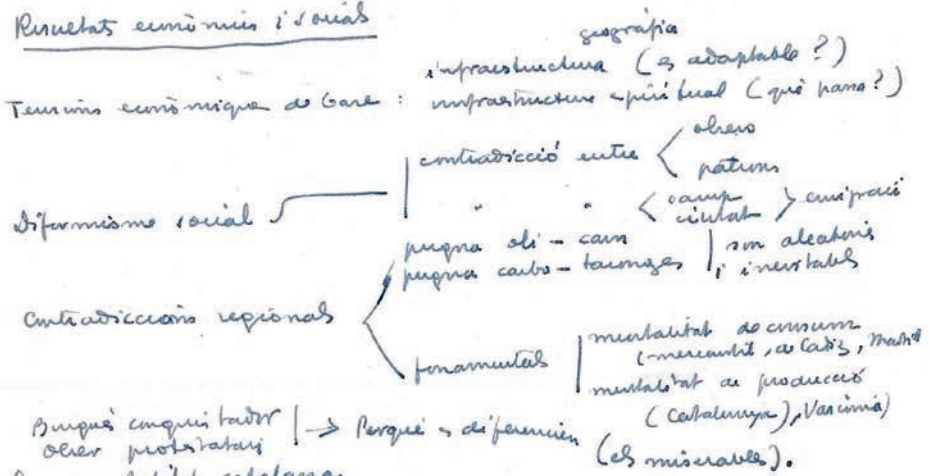 Resultats econòmics i socials
geogràfica
infraestructura (es adaptable?)
Tensions econòmiques de base: infraestructura espiritual (què passa?)
contradicció entre < obrers
patrons
Diformisme social
" " < camp
ciutat > emigració
pugna oli - carn | son aleatoris
pugna carbo - taronges | i inevitables
Contradiccions regionals
fonamentals | mentalitat de consum
(mercantil, de Cadiz, Madrid
mentalitat de producció
(Catalunya), Vasconia)
Burgués conquistador
obrer protestatari | → Perquè es diferencien
(els miserables).
catalana